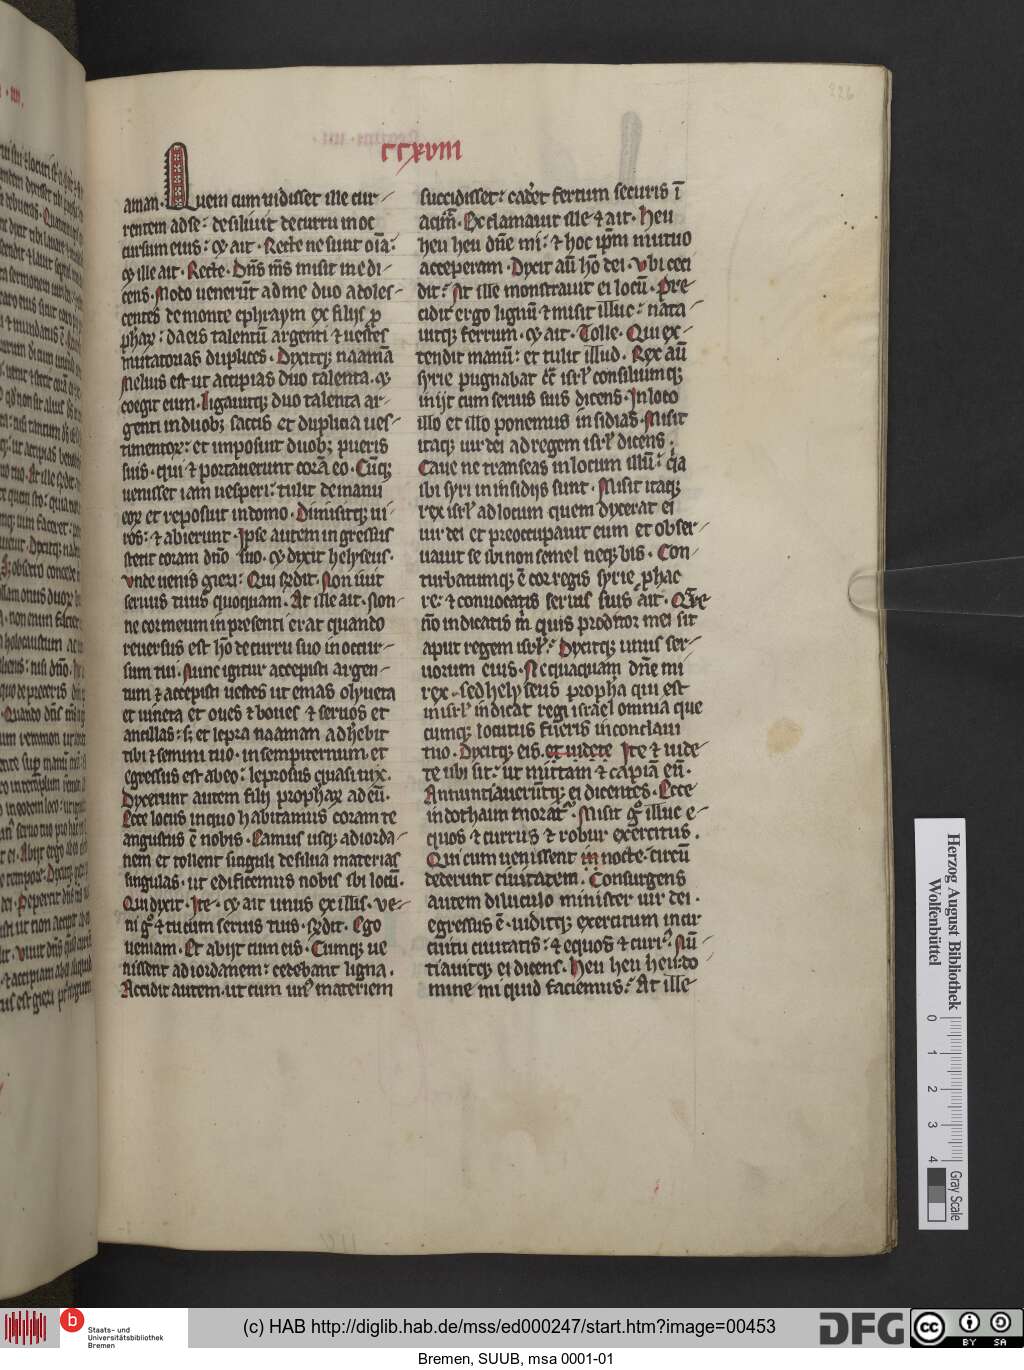 CCXVIII
aman. Quem cum vidisset ille cur-
rentem ad se: desiliuit de curru in oc
cursum eius: et ait. Recte ne sunt oīa:
et ille ait. Recte. Dn̄s ms̄ misit me di-
cens. Modo uenerūt ad me duo adoles-
centes de monte ephraym ex filijs ꝓ
phaꝝ: da eis talentū argenti ⁊ uestes
mutatorias duplices. Dixitqꝫ naamā
Melius est ut accipias duo talenta. et
coegit eum. Ligauitqꝫ duo talenta ar-
genti in duobꝫ saccis et duplicia ues-
timentoꝝ: et imposuit duobꝫ pueris
suis. qui ⁊ portauerunt corā eo. Cūqꝫ
uenisset iam uesperi: tulit de manu
eoꝝ et reposuit in domo. Dimisitqꝫ ui-
ros: ⁊ abierunt. Ipse autem ingressus
stetit coram dn̄o suo. et dixit helyseus.
Unde uenis giezi: Qui rn̄dit. Non iuit
seruus tuus quoquam. At ille ait. Non-
ne cor meum in presenti erat quando
reuersus est hō de curru suo in occur-
sum tui. Nunc igitur accepisti argen-
tum ⁊ accepisti uestes ut emas olyueta
et uineta et oues ⁊ boues ⁊ seruos et
ancillas: s; et lepra naaman adhebit
tibi ⁊ semini tuo. in sempiternum et
egressus est ab eo: leprosus quasi nix.
Dixerunt autem filij prophaꝝ ad eū.
Ecce locus in quo habitamus coram te
angustus ē nobis. Eamus usqꝫ ad iorda-
nem et tollent singuli de silua materias
singulas. ut edificemus nobis ibi locū.
Qui dixit. Ite. et ait unus ex illis. Ve-
ni gͦ ⁊ tu cum seruis tuis. Rn̄dit. Ego
ueniam. Et abijt cum eis. Cumqꝫ ue
nissent ad iordanem: cedebant ligna.
Accidit autem. ut cum unꝰ materiem
succidisset: caderet ferrum securis ī
aqm̄. Exclamauit ille ⁊ ait. Heu
heu heu dn̄e mi: ⁊ hoc ip̄m mutuo
acceperam. Dixit aū hō dei. Vbi ceci
dit: At ille monstrauit ei locū. Pre-
cidit ergo lignū ⁊ misit illuc: nata-
uitqꝫ ferrum. et ait. Tolle. Qui ex-
tendit manū: et tulit illud. Rex aū
syrie pugnabat cō isrl̄ consiliumqꝫ
inijt cum seruis suis dicens. In loco
illo et illo ponemus insidias. Misit
itaqꝫ uir dei ad regem isrl̄ dicens.
Caue ne transeas in locum illū: qia
ibi syri in insidijs sunt. Misit itaqꝫ
rex isrl̄ ad locum quem dixerat ei
uir dei et preoccupauit eum et obser-
uauit se ibi non semel neqꝫ bis. Con-
turbatumqꝫ ē cor regis syrie ꝓ hac
re: ⁊ conuocatis seruis suis ait. Qre
nō indicatis m̄ quis proditor mei sit
aput regem isrl̄: Dixitqꝫ unus ser-
uorum eius. Nequaquam dn̄e mi
rex. sed helyseus propha qui est
in isrl̄ indicat regi israel omnia que
cumqꝫ locutus fueris in conclaui
tuo. Dixitqꝫ eis. et uidete Ite ⁊ uide-
te ubi sit: ut mittam ⁊ capiā eū.
Annuntiauerūtqꝫ ei dicentes. Ecce
in dothaim moratᷣ. Misit gͦ illuc e-
quos ⁊ currus ⁊ robur exercitus.
Qui cum uenissent in nocte. circū
dederunt ciuitatem. Consurgens
autem diluculo minister uir dei.
egressus ē. uiditqꝫ exercitum incir
cuitu ciuitatis: ⁊ equos ⁊ currꝰ. Nū-
tiauitqꝫ ei dicens. Heu heu heu. do-
mine mi quid faciemus: At ille
226
Herzog August Bibliothek
Wolfenbüttel
0 1 2 3 4
Gray Scale
b
Staats- und
Universitätsbibliothek
Bremen
(c) HAB http://diglib.hab.de/mss/ed000247/start.htm?image=00453
DFG
cc
BY SA
Bremen, SUUB, msa 0001-01